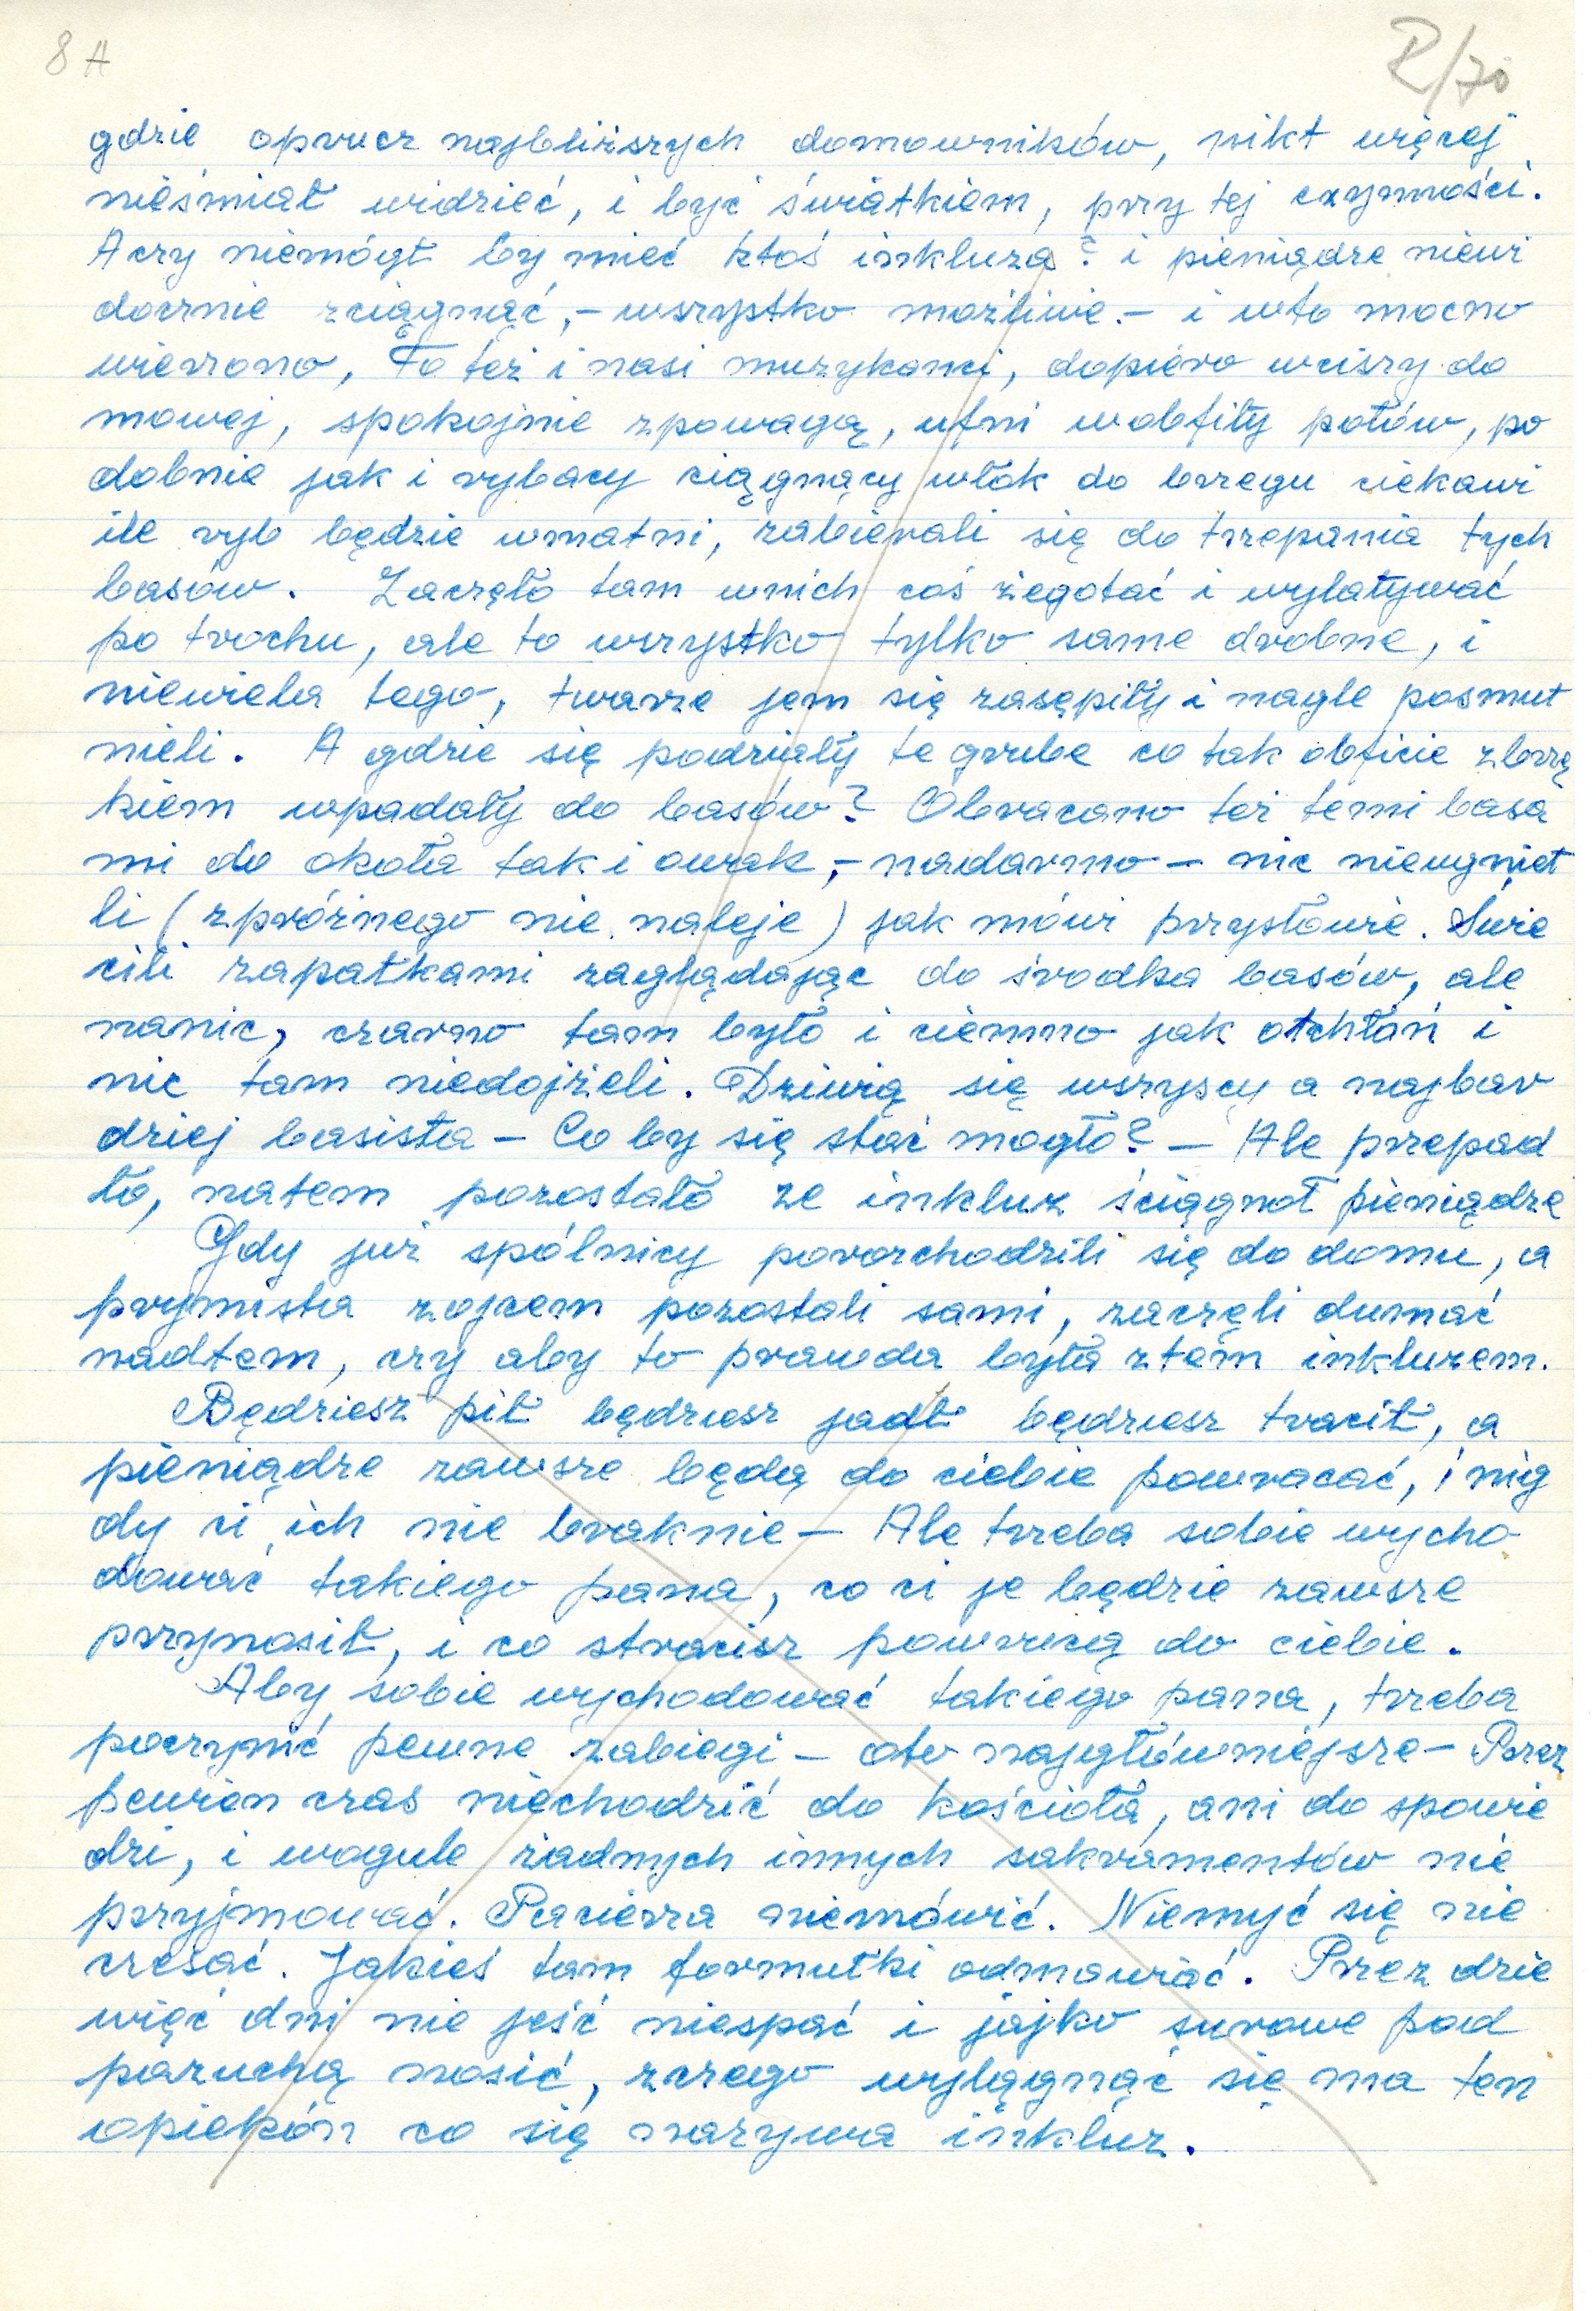 8 A
R/70
gdzie oprucz najbliższych domowników, nikt więcej
nieśmiał widzieć, i być świátkiem, przy tej czynności.
A czy niemógł by mieć ktoś inkluza? i pieniądze niewi
docznie zciągnąć, – wszystko możliwe. – i wto mocno
wierzono, To też i nasi muzykanci, dopiero wciszy do
mowej, spokojnie zpowagą, ufni wobfity połów, po
dobnie jak i rybacy ciągnący włok do brzegu ciekawi
ile ryb będzie wmatni, zabierali się do trzepania tych
basów. Zaczęło tam wnich coś żegotać i wylatywać
po trochu, ale to wszystko tylko same drobne, i
niewiela tego, twarze jem się zasępiły i nagle posmut
nieli. A gdzie się podziały te grube co tak obficie zbrzę
kiem wpadały do basów? Obracano też temi basa
mi do okoła tak i owak, – nadarmo – nic niewygniet
li ( zpróżnego nie naleje ) jak mówi przysłowie. Świe
cili zapałkami zaglądając do środka basów, ale
nanic, czarno tam było i ciemno jak otchłań i
nic tam niedojżeli. Dziwią się wszyscy a najbar
dziej basista – Co by się stać mogło? – Ale przepad
ło, natem pozostało ze inkluz ściągnoł pieniądze
Gdy już spólnicy porozchodzili się do domu, a
prymista zojcem pozostali sami, zaczęli dumać
nadtem, czy aby to prawda była ztem inkluzem.
Będziesz pił będziesz jadł będziesz tracił, a
pieniądze zawsze będą do ciebie powracać, i nig
dy ci ich nie braknie – Ale trzeba sobie wycho-
dować takiego pana, co ci je będzie zawsze
przynosił, i co stracisz powrucą do ciebie.
Aby sobie wychodować takiego pana, trzeba
poczynić pewne zabiegi – oto najgłówniejsze – Przez
pewien czas niechodzić do kościoła, ani do spowie
dzi, i wogule żadnych innych sakramentów nie
przyjmować. Pacierza niemówić. Niemyć się nie
czesać. Jakieś tam formułki odmawiać. Przez dzie
więć dni nie jeść niespać i jajko surowe pod
pazuchą nosić, zczego wylągnąć się ma ten
opiekón co się nazywa inkluz.